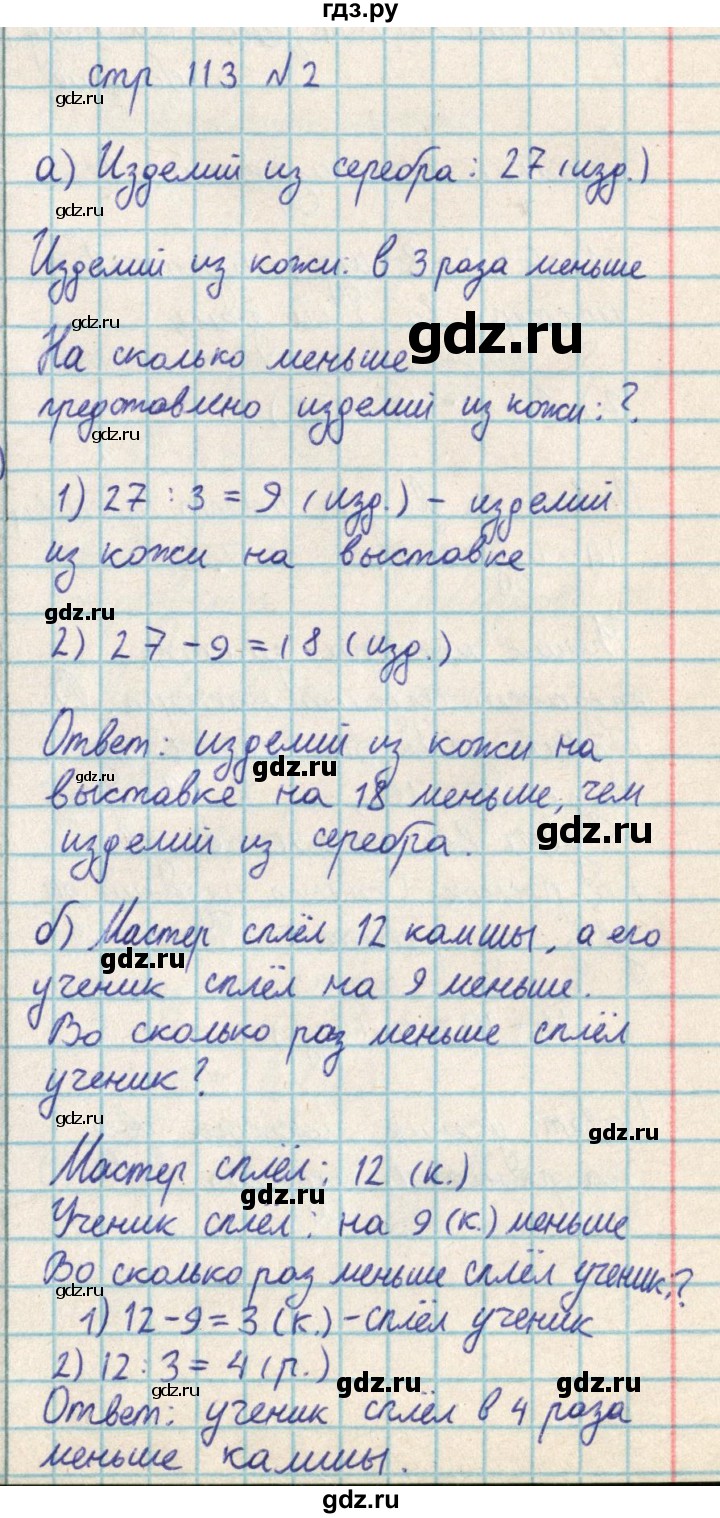 гдз.ру
стр 113 №2
gdz.ru
а) Изделий из серебра: 27 (изд.)
gdz.ru
Изделий из кожи: в 3 раза меньше
gdz.ru
gdz.ru
На сколько меньше
представлено изделий из кожи: ?
gdz.ru
1) 27 : 3 = 9 (изд.) - изделий
из кожи на выставке
gdz.ru
2) 27 - 9 = 18 (изд.)
Ответ: изделий из кожи на
gdz.ru
gdz.ru
выставке на 18 меньше, чем
gdz.ru
изделий из серебра.
б) Мастер сплёл 12 камшы, а его
gdz.ru
ученик сплёл на 9 меньше.
Во сколько раз меньше сплёл
ученик?
gdz.ru
gdz.ru
Мастер сплёл: 12 (к.)
gdz.ru
Ученик сплел: на 9 (к.) меньше
Во сколько раз меньше сплёл ученик: ?
gdz.ru
1) 12 - 9 = 3 (к.) - сплёл ученик
2) 12 : 3 = 4 (р.)
gdz.ru
gdz.ru
gdz.ru
Ответ: ученик сплёл в 4 раза
меньше камшы.
gdz.ru